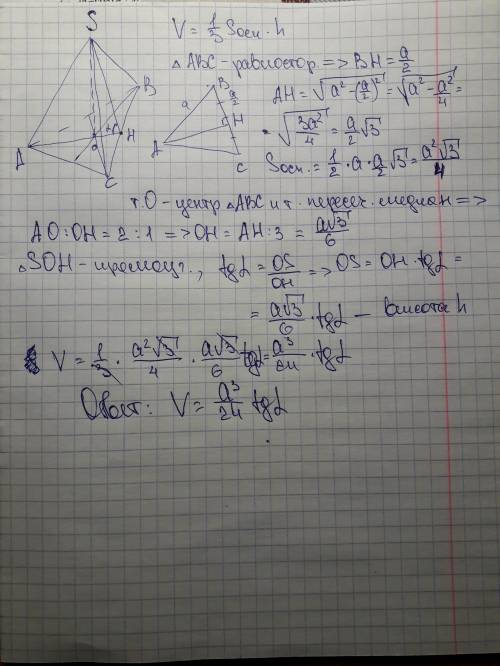 S
V = 1/3 Sосн. · h
△ABC - равностор. => BH = a/2
B
B
a
a/2
AH = √(a² - (a/2)²) = √(a² - a²/4) =
H
H
A
A
C
C
= √(3a²/4) = a/2 √3
Sосн. = 1/2 · a · a/2 √3 = a²√3/4
т.O - центр △ABC и т. пересеч. медиан =>
AO : OH = 2 : 1 => OH = AH : 3 = a√3/6
△SOH - прямоуг., tgα = OS/OH => OS = OH · tgα =
= a√3/6 · tgα - высота h
V = 1/3 · a²√3/4 · a√3/6 tgα = a³/24 · tgα
Ответ: V = a³/24 tgα